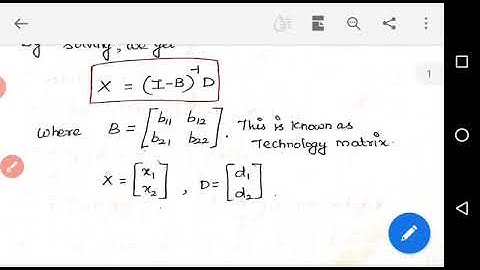 By solving, we get
X = (I-B)⁻¹ D
where B = [b₁₁ b₁₂
b₂₁ b₂₂]. This is known as
Technology matrix.
X = [x₁
x₂], D = [d₁
d₂].
1